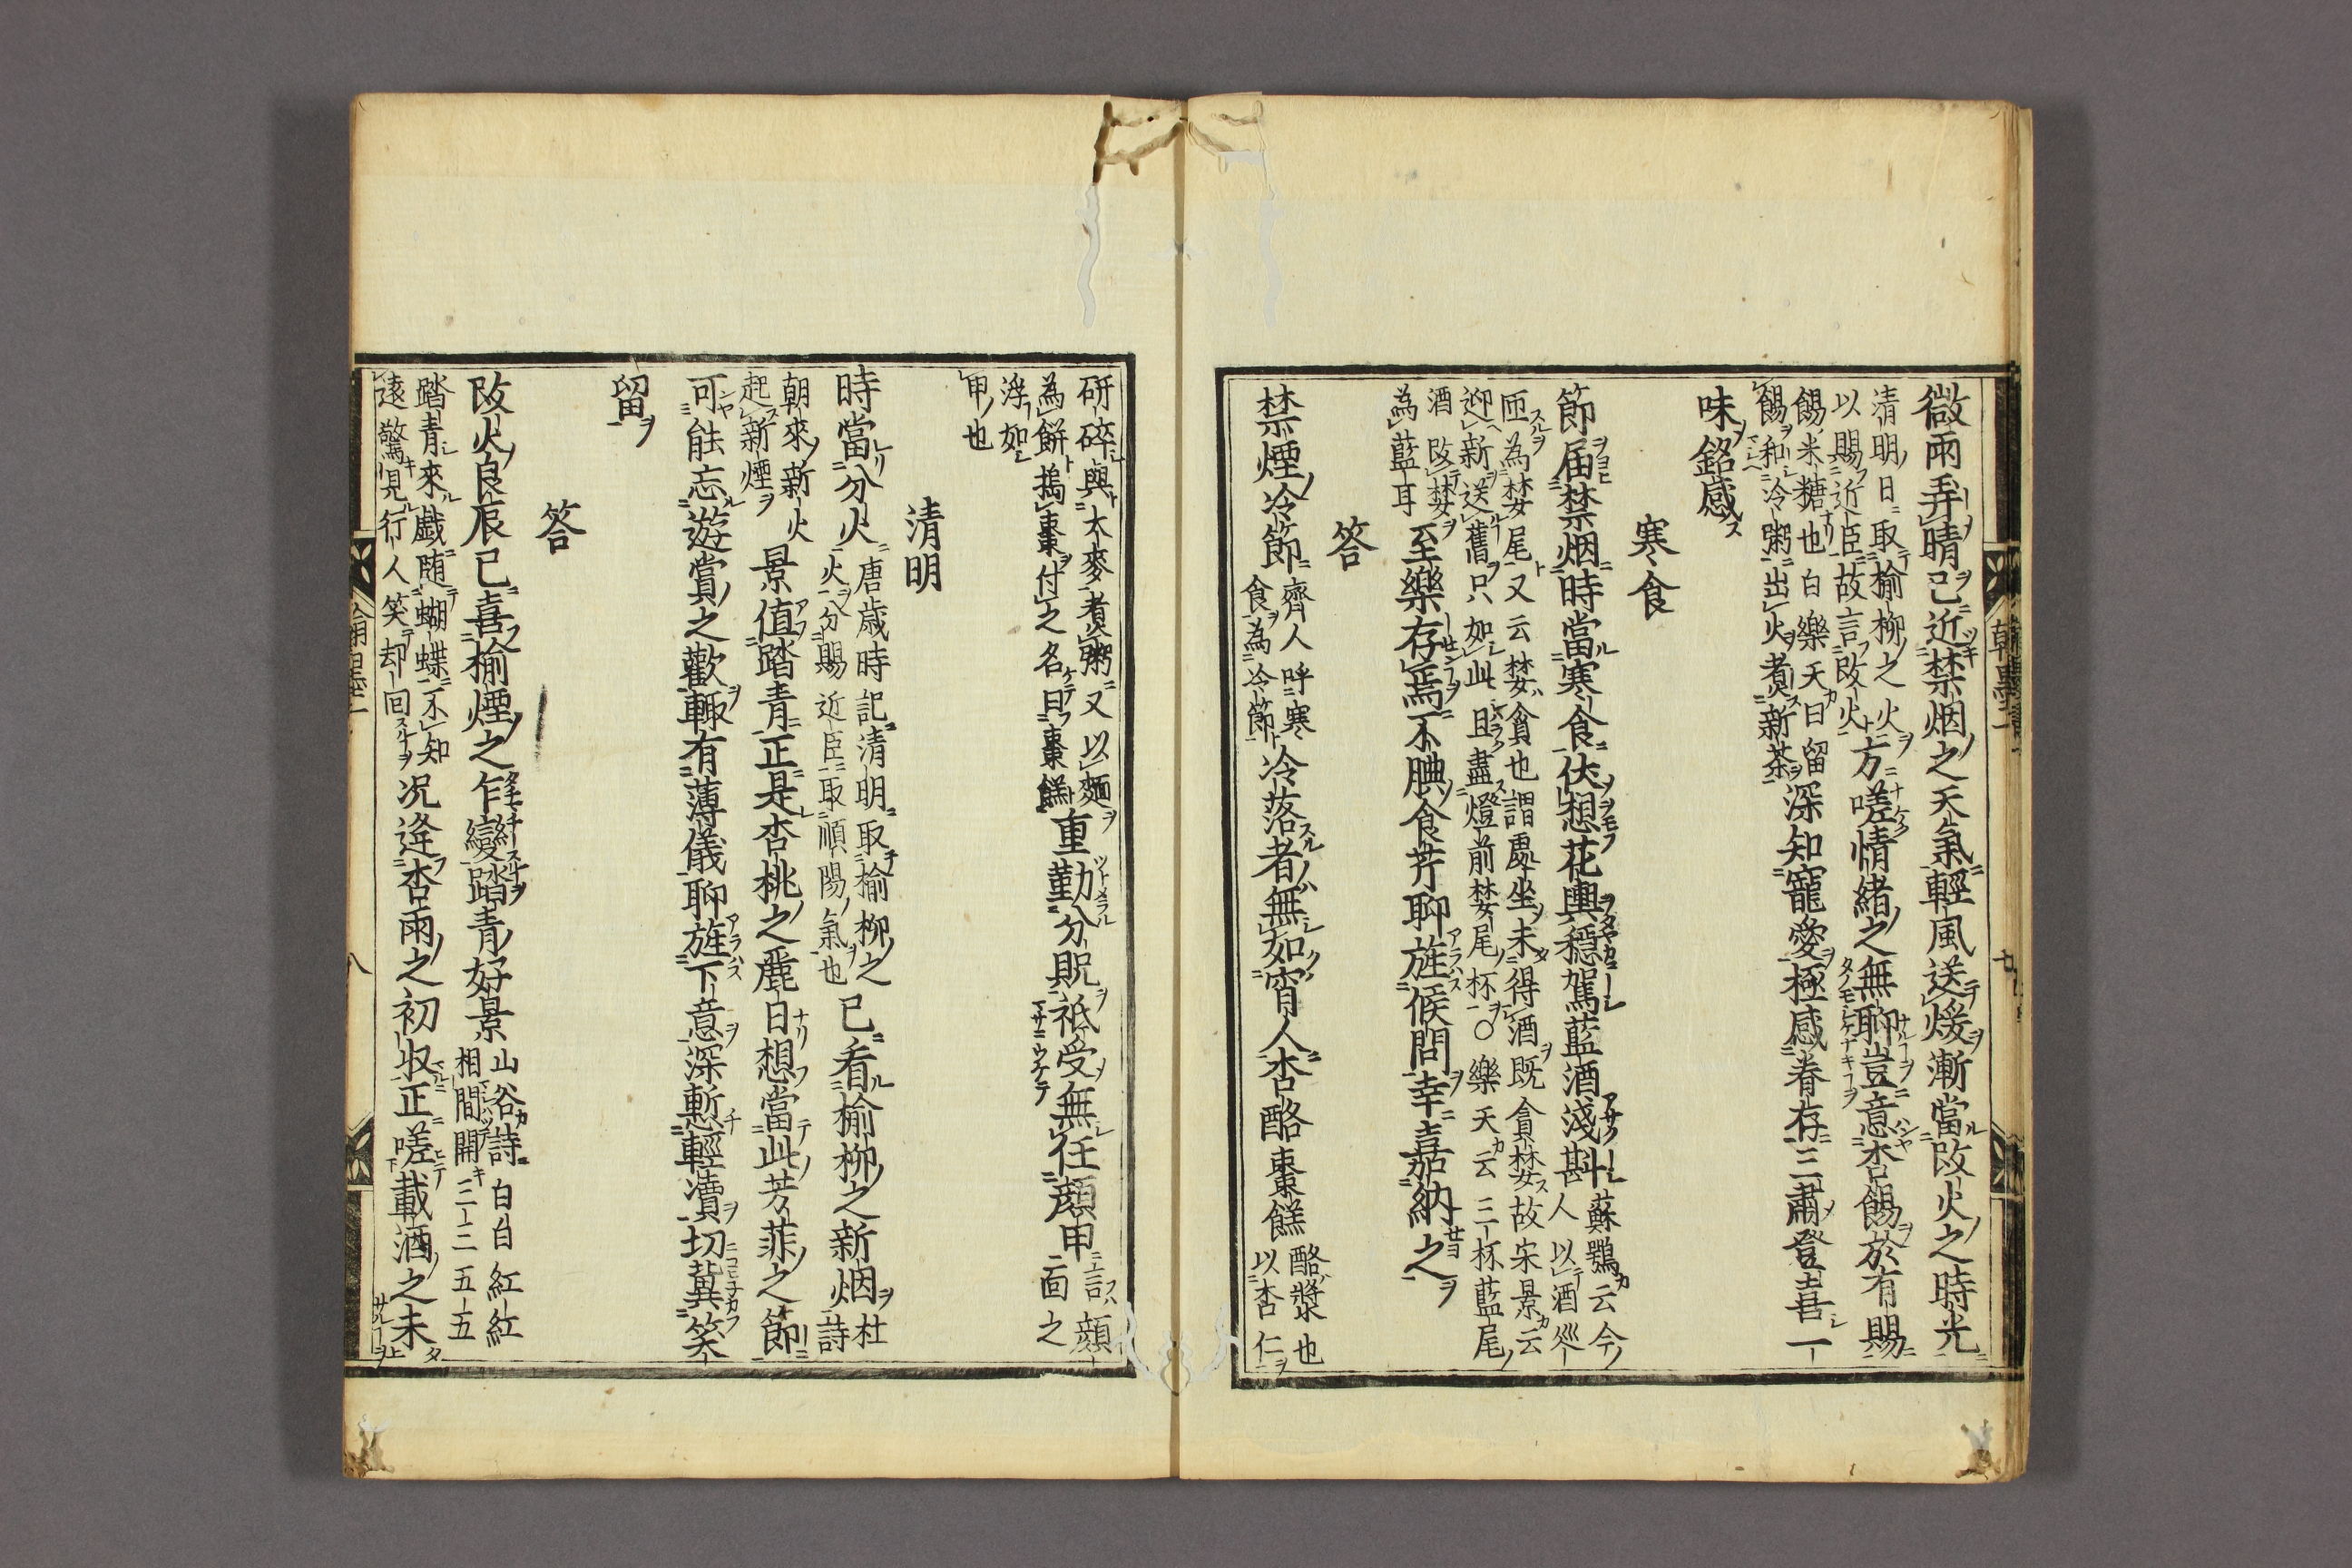 微雨弄晴已近禁烟之天氣輕風送煖漸當改火之時光
清明日取榆柳之火
以賜近臣故言改火
方嗟情緒之無聊豈意杏餳於有賜
餳米糖也白樂天曰留
餳和冷粥出火煮新茶
深知寵愛極感眷存三肅登喜一
味銘感
寒食
節届禁烟時當寒食伏想花輿穩駕藍酒淺斟
蘇鶚云今人以酒巡
匝為婪尾又云婪貪也謂處坐未得酒既貪婪故宋景云
迎新送舊只如此且盡燈前婪尾杯○樂天云三杯藍尾
酒改婪
為藍耳
至樂存焉不腆食芹聊旌候問幸嘉納之
答
禁煙冷節
齊人呼寒
食為冷節
冷落者無如窅人杏酪棗餻
酪漿也
以杏仁
研碎與大麥煮粥又以麵
為餅搗棗付之名曰棗餻
重勤分貺祗受無任顔甲
言顔
面之
浮如
甲也
清明
時當分火
唐歳時記清明取榆柳之
火分賜近臣取順陽氣也
已看榆柳之新烟
杜詩
朝來新火
起新煙
景值踏青正是杏桃之麗日想當此芳菲之節
可能忘遊賞之歡輙有薄儀聊旌下意深慙輕瀆切冀笑
留
答
改火良辰已喜榆煙之乍變踏青好景
山谷詩白白紅紅
相間開三三五五
踏青來戯随蝴蝶不知
遠驚見行人笑却回
况逢杏雨之初収正嗟載酒之未